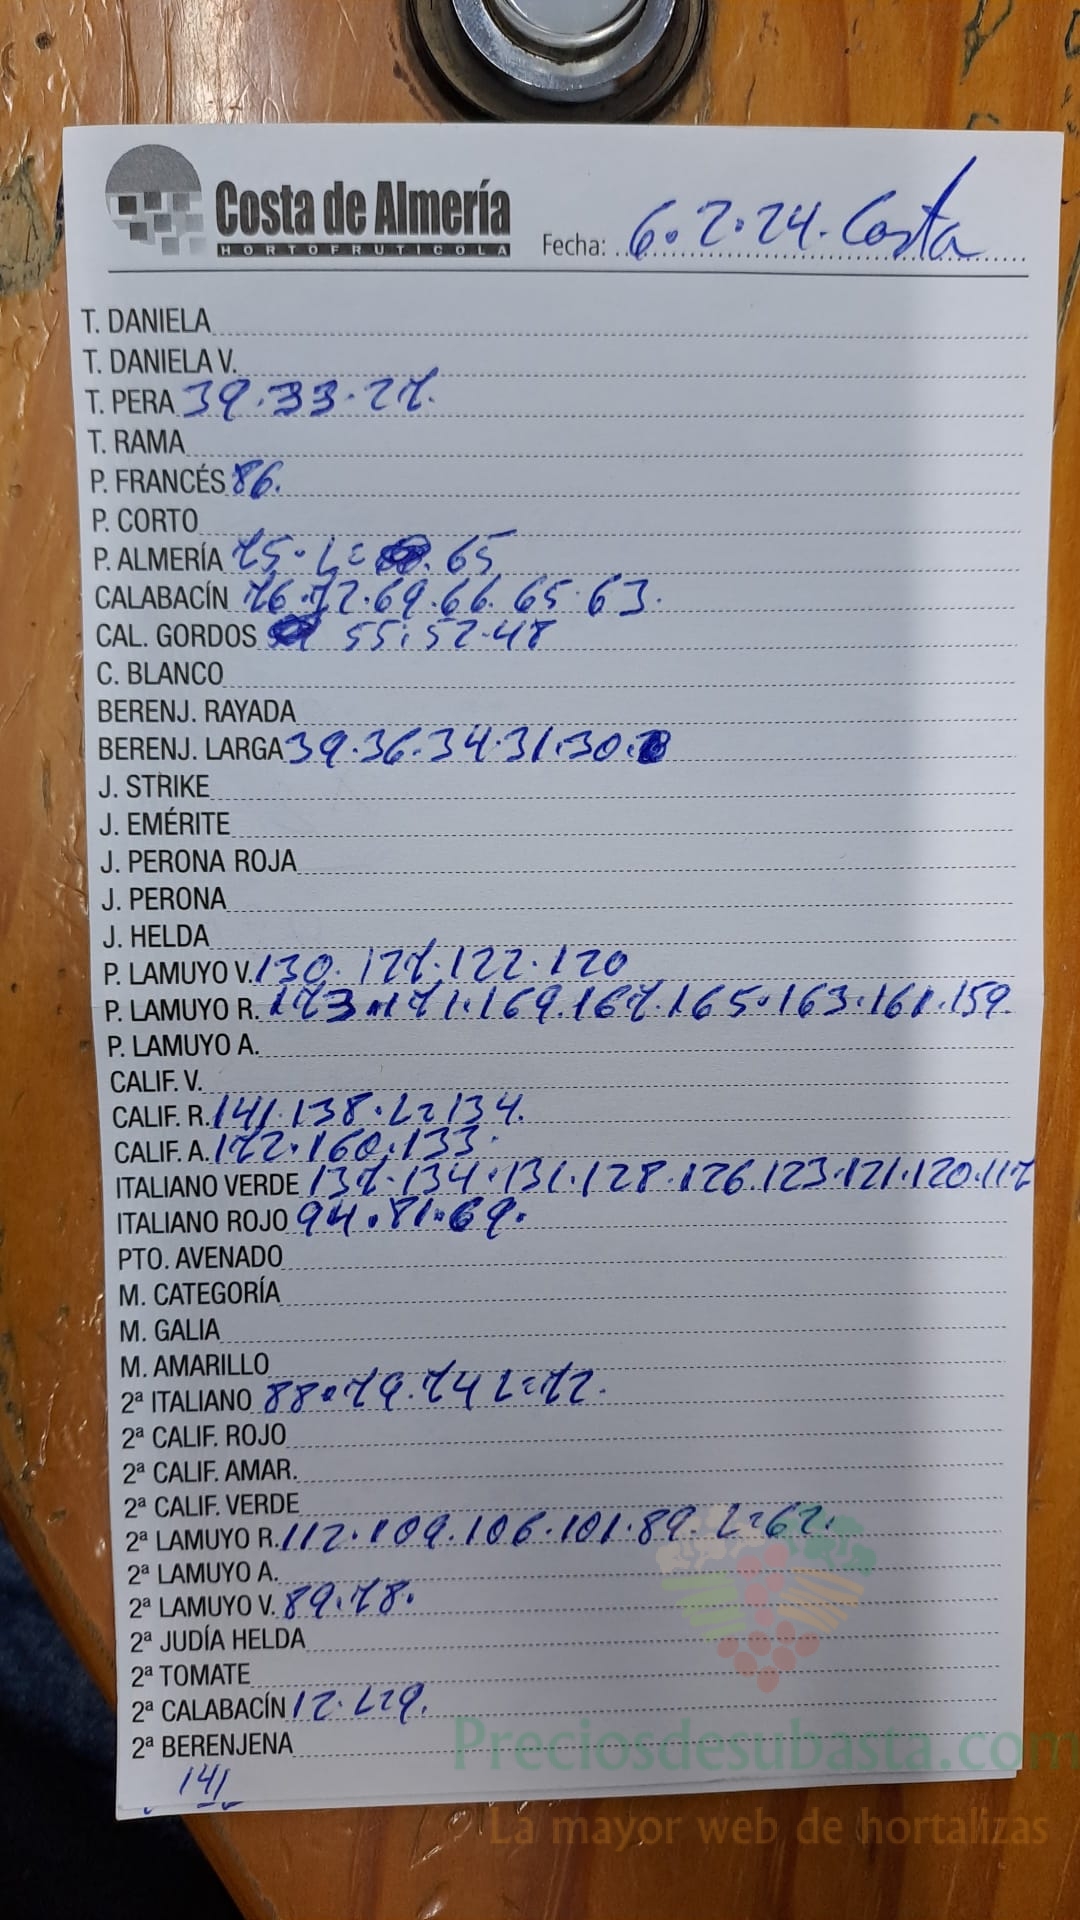 Costa de Almería
HORTOFRUTICOLA
Fecha: 6.2.24. Costa
T. DANIELA
T. DANIELA V.
T. PERA 39.33.27.
T. RAMA
P. FRANCÉS 86.
P. CORTO
P. ALMERÍA 75. L= 65
CALABACÍN 76.72.69.66. 65.63.
CAL. GORDOS 55.52.48
C. BLANCO
BERENJ. RAYADA
BERENJ. LARGA 39.36.34.31.30.
J. STRIKE
J. EMÉRITE
J. PERONA ROJA
J. PERONA
J. HELDA
P. LAMUYO V. 130. 127.122.120
P. LAMUYO R. 173.171.169.167.165.163.161.159.
P. LAMUYO A.
CALIF. V.
CALIF. R. 141.138. L=134.
CALIF. A. 172.160.133.
ITALIANO VERDE 137.134.131.128.126.123.121.120.117
ITALIANO ROJO 94.81.69.
PTO. AVENADO
M. CATEGORÍA
M. GALIA
M. AMARILLO
2ª ITALIANO 88.79.74 L=72.
2ª CALIF. ROJO
2ª CALIF. AMAR.
2ª CALIF. VERDE
2ª LAMUYO R. 112.109.106.101.89. L=62.
2ª LAMUYO A.
2ª LAMUYO V. 89.78.
2ª JUDÍA HELDA
2ª TOMATE
2ª CALABACÍN 12. L=9.
2ª BERENJENA
141
Preciosdesubasta.com
La mayor web de hortalizas